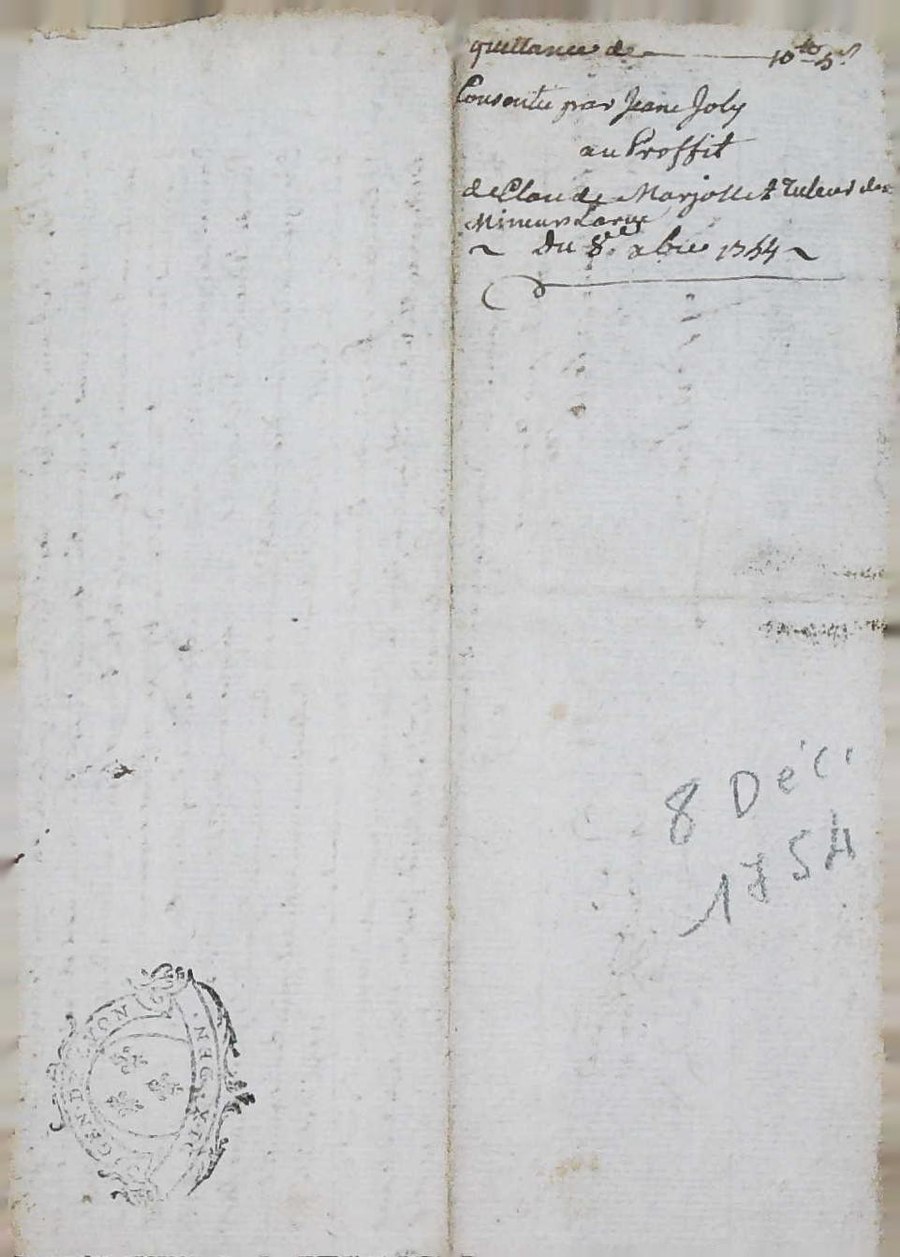 quittance de 10tt 5s
Consentie par Jeane Joly
au Proffit
de Claude Marjollet Tuteur des
Mineurs Larue
~ Du 8e xbre 1754 ~
8 Déc.
1754
GEN. DE LYON
DEN